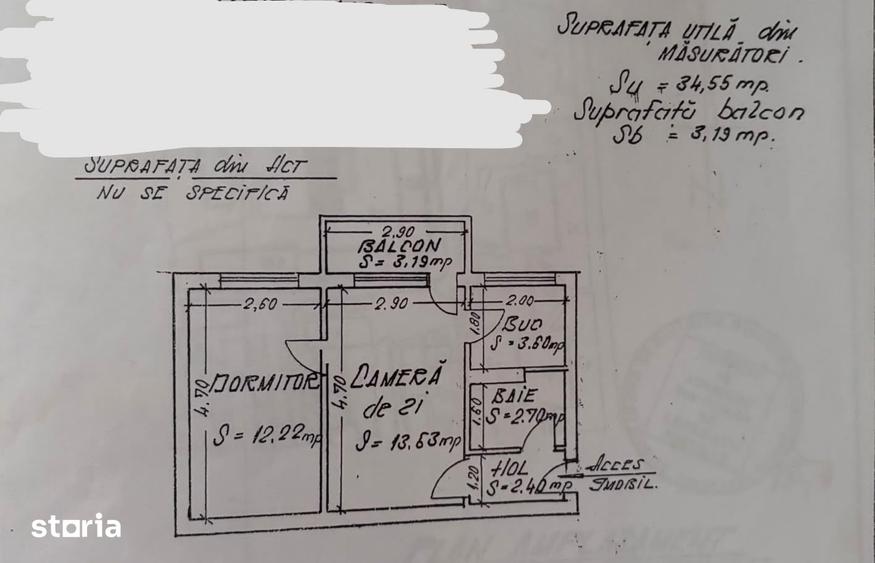 SUPRAFAȚA UTILĂ din
MĂSURĂTORI.
Su = 34,55 mp.
Suprafată balcon
Sb = 3,19 mp.
SUPRAFAȚA din ACT
NU SE SPECIFICĂ
2,90
BALCON
S = 3,19 mp
2,60
2,90
2,00
1,80
BUC
S = 3,60 mp
4,70
DORMITOR
S = 12,22 mp
4,70
CAMERĂ
de zi
S = 13,63 mp
1,60
BAIE
S = 2,70 mp
1,20
HOL
S = 2,40 mp
ACCES
IMOBIL.
storia